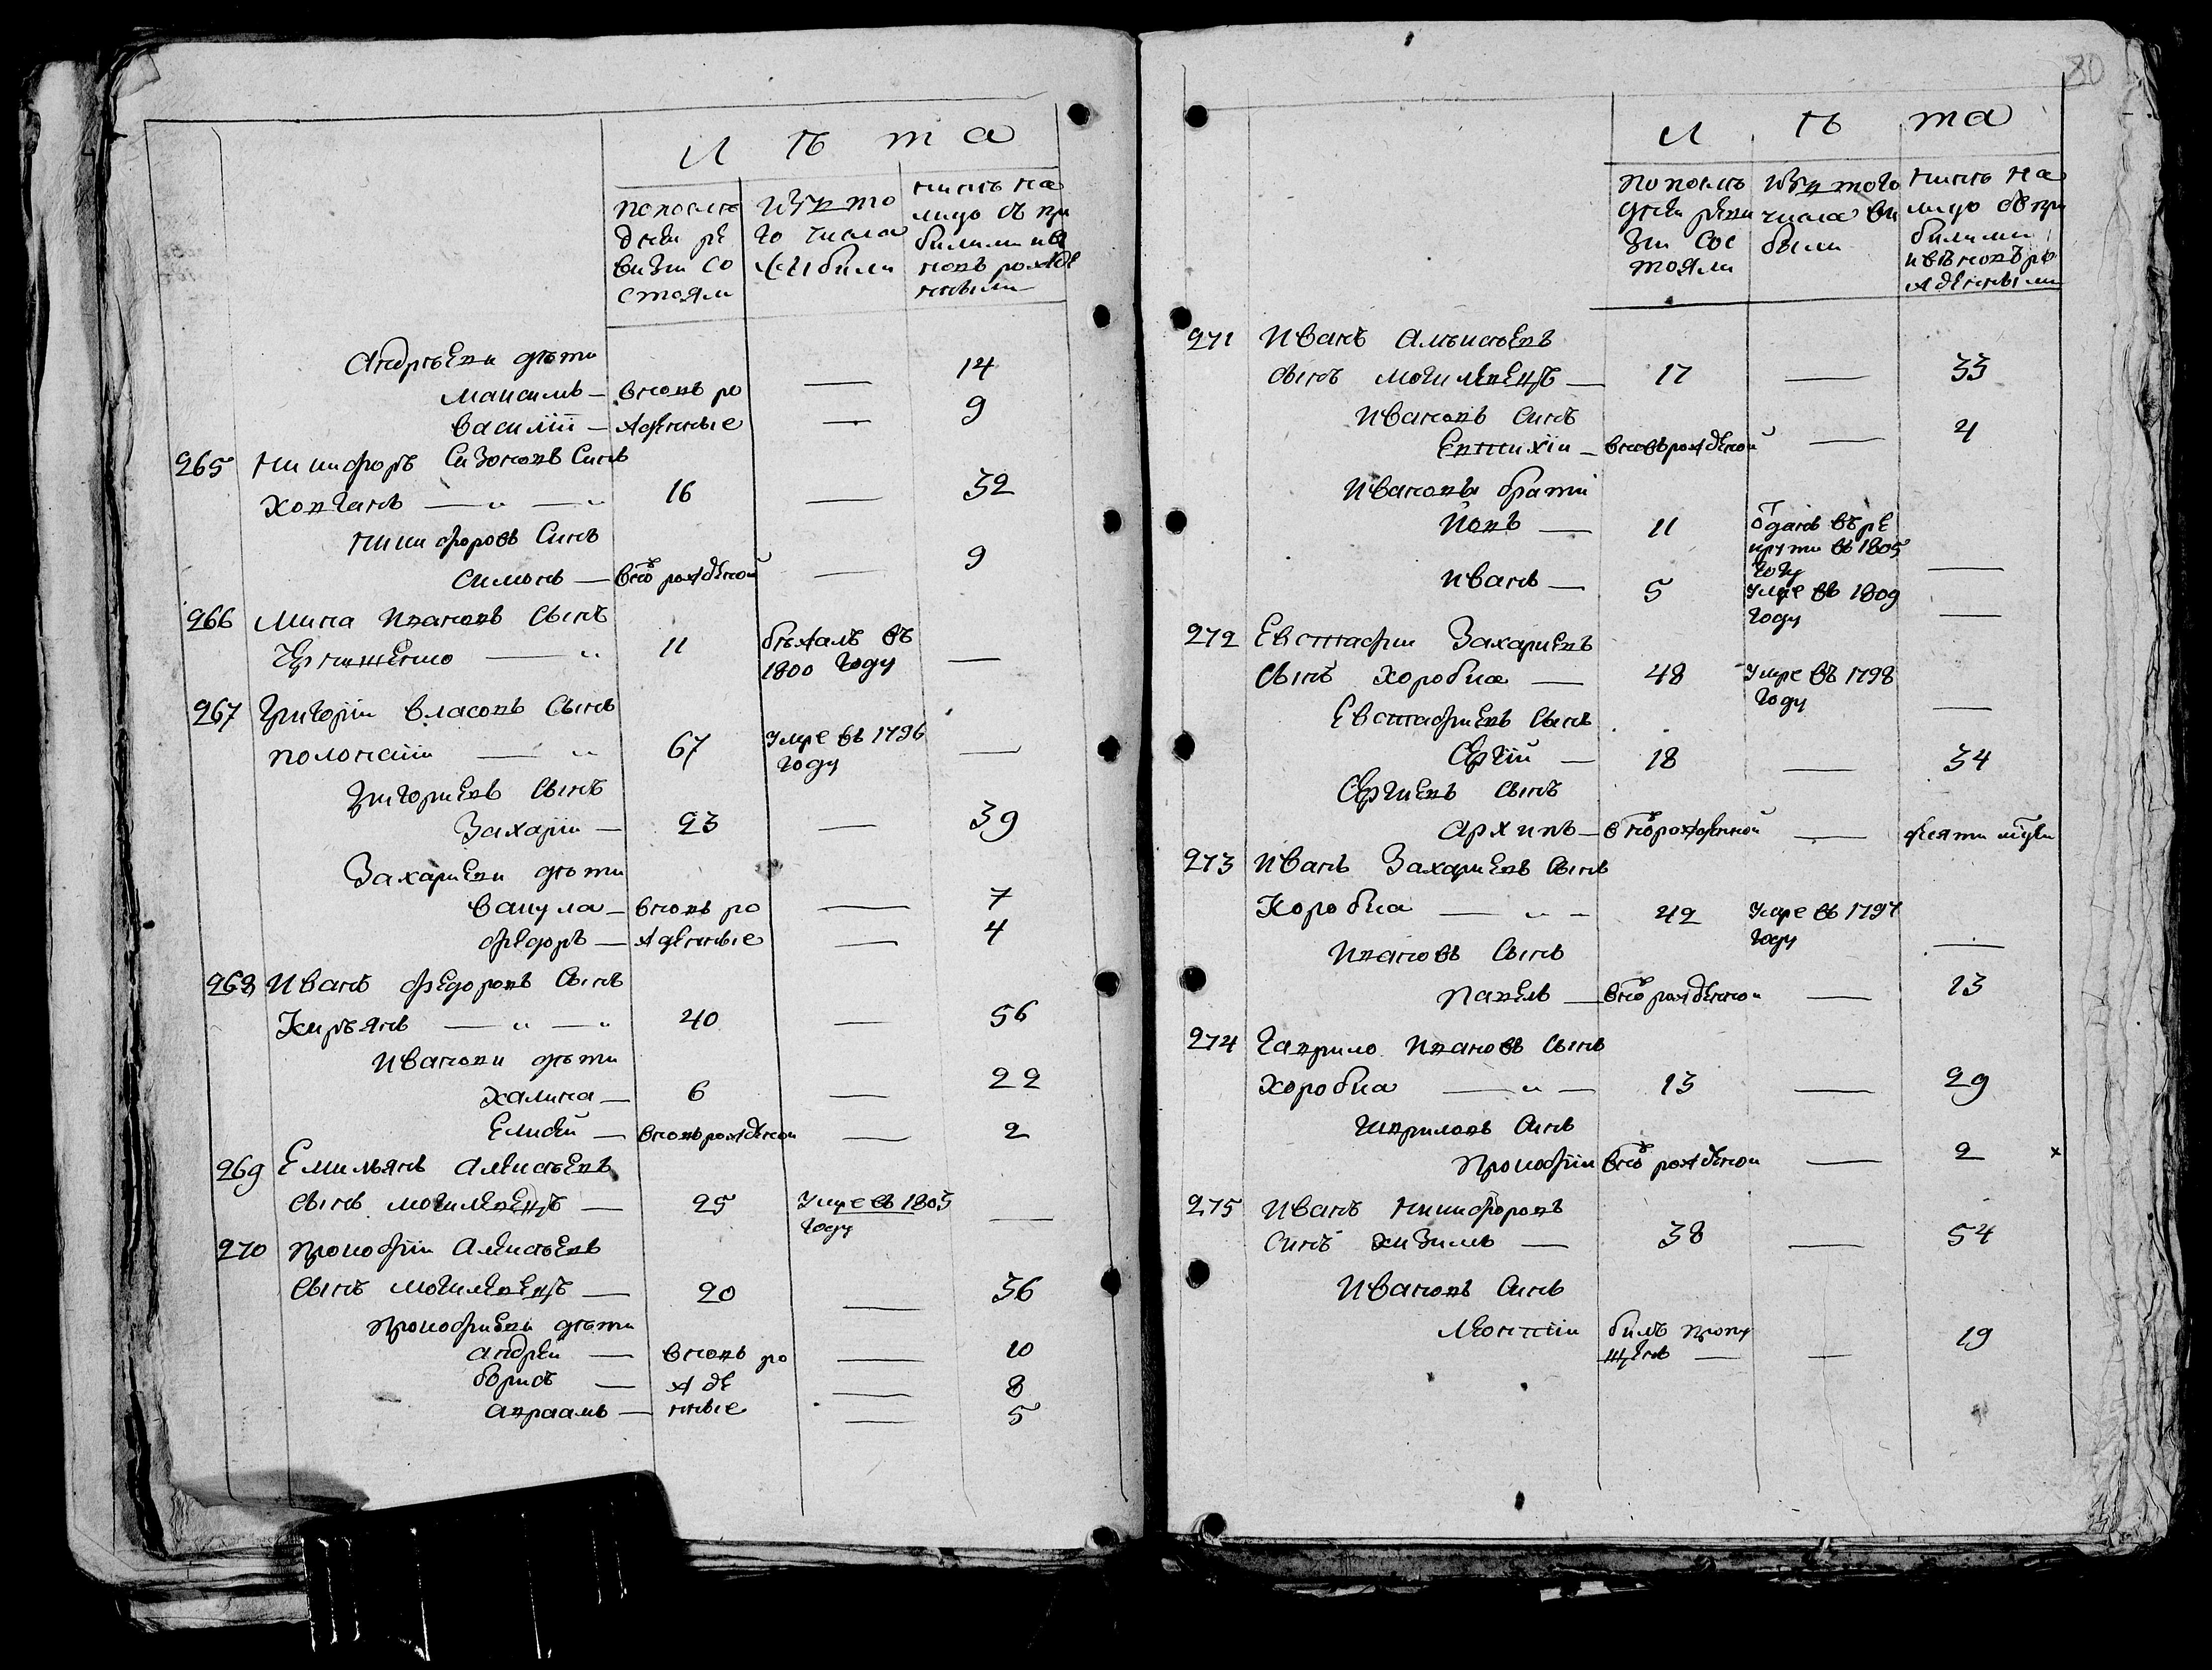 Л ѣ т а
попослѣ
дней ре
визіи со
стояли
изъ то
го числа
выбыли
нынѣ на
лицо съ при
былыми и в
новъ рожде
нными
Андрѣеви дѣти
14
Максимъ — вновь ро —
Василіи — жденные — 9
265 Никифоръ Сизоновъ Синъ
Ховчанъ — 16 — 32
Никифоровъ Синъ
Симонъ — вно рожденой — 9
266 Мина Ивановъ Сынъ
11 бѣжалъ въ
1800 году —
267 Григоріи Власовъ Сынъ
67 Умре въ 1796
году —
Григориевъ Сынъ
Захаріи — 23 — 39
Захариеви дѣти
Вакула — вновь ро — 7
Федоръ — жденные — 4
268 Иванъ Федоровъ Сынъ
Кирьянъ — 40 — 56
Иванови дѣти
Халина — 6 — 22
Елисей — вновь рожденой — 2
269 Емильянъ Алексѣевъ
Сынъ Могилевецъ — 25 Умре въ 1805
году —
270 Прокофіи Алексѣевъ
Сынъ Могилевецъ — 20 — 36
Прокофиеви дѣти
Андрей — вновь ро — 10
Борисъ — жде — 8
Авраамъ — нные — 5
80
Л ѣ та
попослѣ
дней реви
зіи сос
тояли
изъ того
числа вы
были
нынѣ на
лицо съ при
былыми
и въ новъ ро
жденными
271 Иванъ Алексѣевъ
Сынъ Могилевецъ — 17 — 33
Ивановъ Синъ
Евтихіи — вновь рожденой — 4
Ивановы братти
Йовъ — 11 отданъ въ ре
круты въ 1805
году —
Иванъ — 5 Умре въ 1809
году —
272 Евстафіи Захариевъ
Сынъ Коробка — 48 Умре въ 1798
году —
Евстафиевъ Сынъ
Сергій — 18 — 34
Сергиевъ Сынъ
Архипъ — вно рожденной —
273 Иванъ Захариевъ Сынъ
Коробка — 42 Умре въ 1797
году —
Ивановъ Сынъ
Павелъ — вно рожденной — 13
274 Гаврило Ивановъ Сынъ
Коробка — 13 — 29
Гавриловъ Синъ
Прокофіи вно рожденой — 2 х
275 Иванъ Никифоровъ
Синъ Кизимъ — 38 — 54
Ивановъ Синъ
Леонтіи билъ пропу
щенъ — — 19